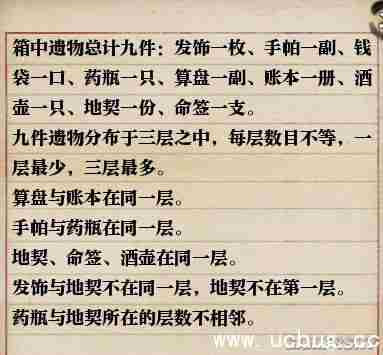 箱中遗物总计九件：发饰一枚、手帕一副、钱
袋一口、药瓶一只、算盘一副、账本一册、酒
壶一只、地契一份、命签一支。
九件遗物分布于三层之中，每层数目不等，一
层最少，三层最多。
算盘与账本在同一层。
手帕与药瓶在同一层。
地契、命签、酒壶在同一层。
发饰与地契不在同一层，地契不在第一层。
药瓶与地契所在的层数不相邻。
www.ucbug.cc